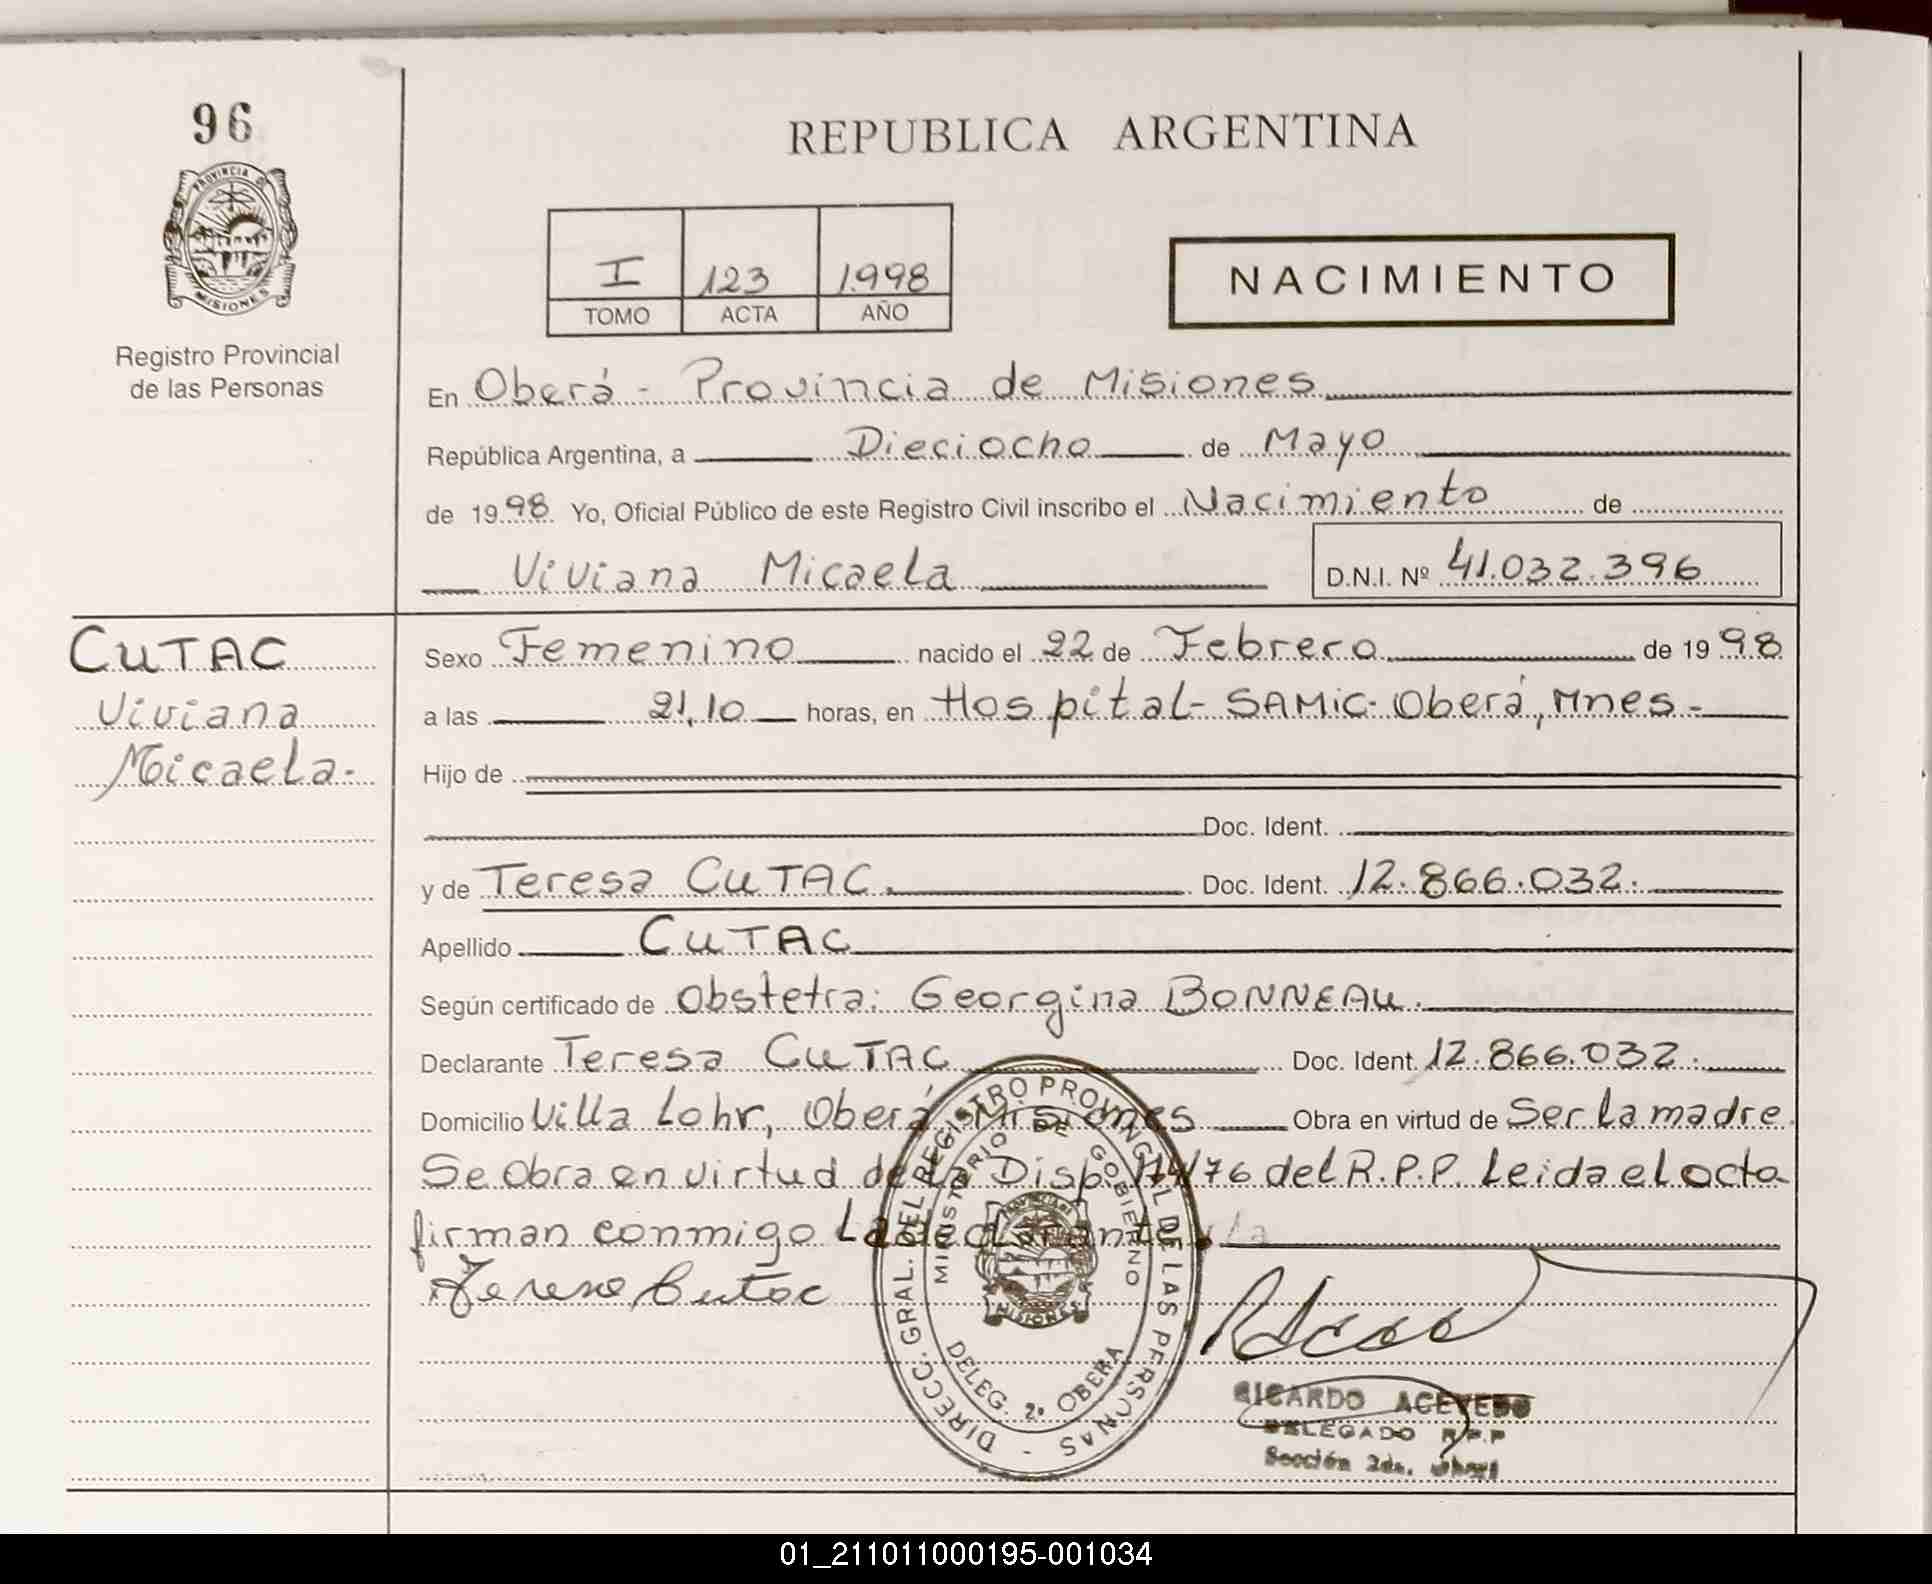 96
PROVINCIA D
MISIONES
Registro Provincial
de las Personas
REPUBLICA ARGENTINA
I 123 1998
TOMO ACTA AÑO
NACIMIENTO
En Oberá - Provincia de Misiones
República Argentina, a Dieciocho de Mayo
de 1998 Yo, Oficial Público de este Registro Civil inscribo el Nacimiento de
Viviana Micaela D.N.I. Nº 41.032.396
CUTAC
Viviana
Micaela.-
Sexo Femenino nacido el 22 de Febrero de 1998
a las 21,10 horas, en Hospital- SAMIC- Oberá, Mnes-
Hijo de
Doc. Ident.
y de Teresa CUTAC. Doc. Ident. 12.866.032.
Apellido CUTAC
Según certificado de Obstetra: Georgina BONNEAU.
Declarante Teresa CUTAC Doc. Ident. 12.866.032.
Domicilio Villa Lohr, Oberá Misiones Obra en virtud de Ser La madre.
Se obra en virtud de La Disp. /76 del R.P.P. Leida el acta
firman conmigo La declarante
Teresa Cutac
DIRECC. GRAL. DEL REGISTRO PROVINCIAL DE LAS PERSONAS -
MINISTERIO DE GOBIERNO
MISIONES
DELEG. 2ª OBERA
RICARDO ACEVEDO
DELEGADO R.P.P
Sección 2da. Oberá
01_211011000195-001034